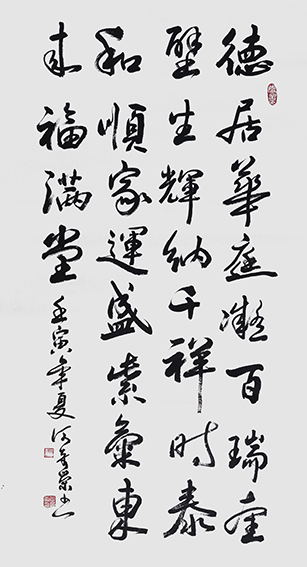 德居華庭凝百瑞金
壁生輝納千祥時泰
和順家運盛紫氣東
来福滿堂
壬寅年夏